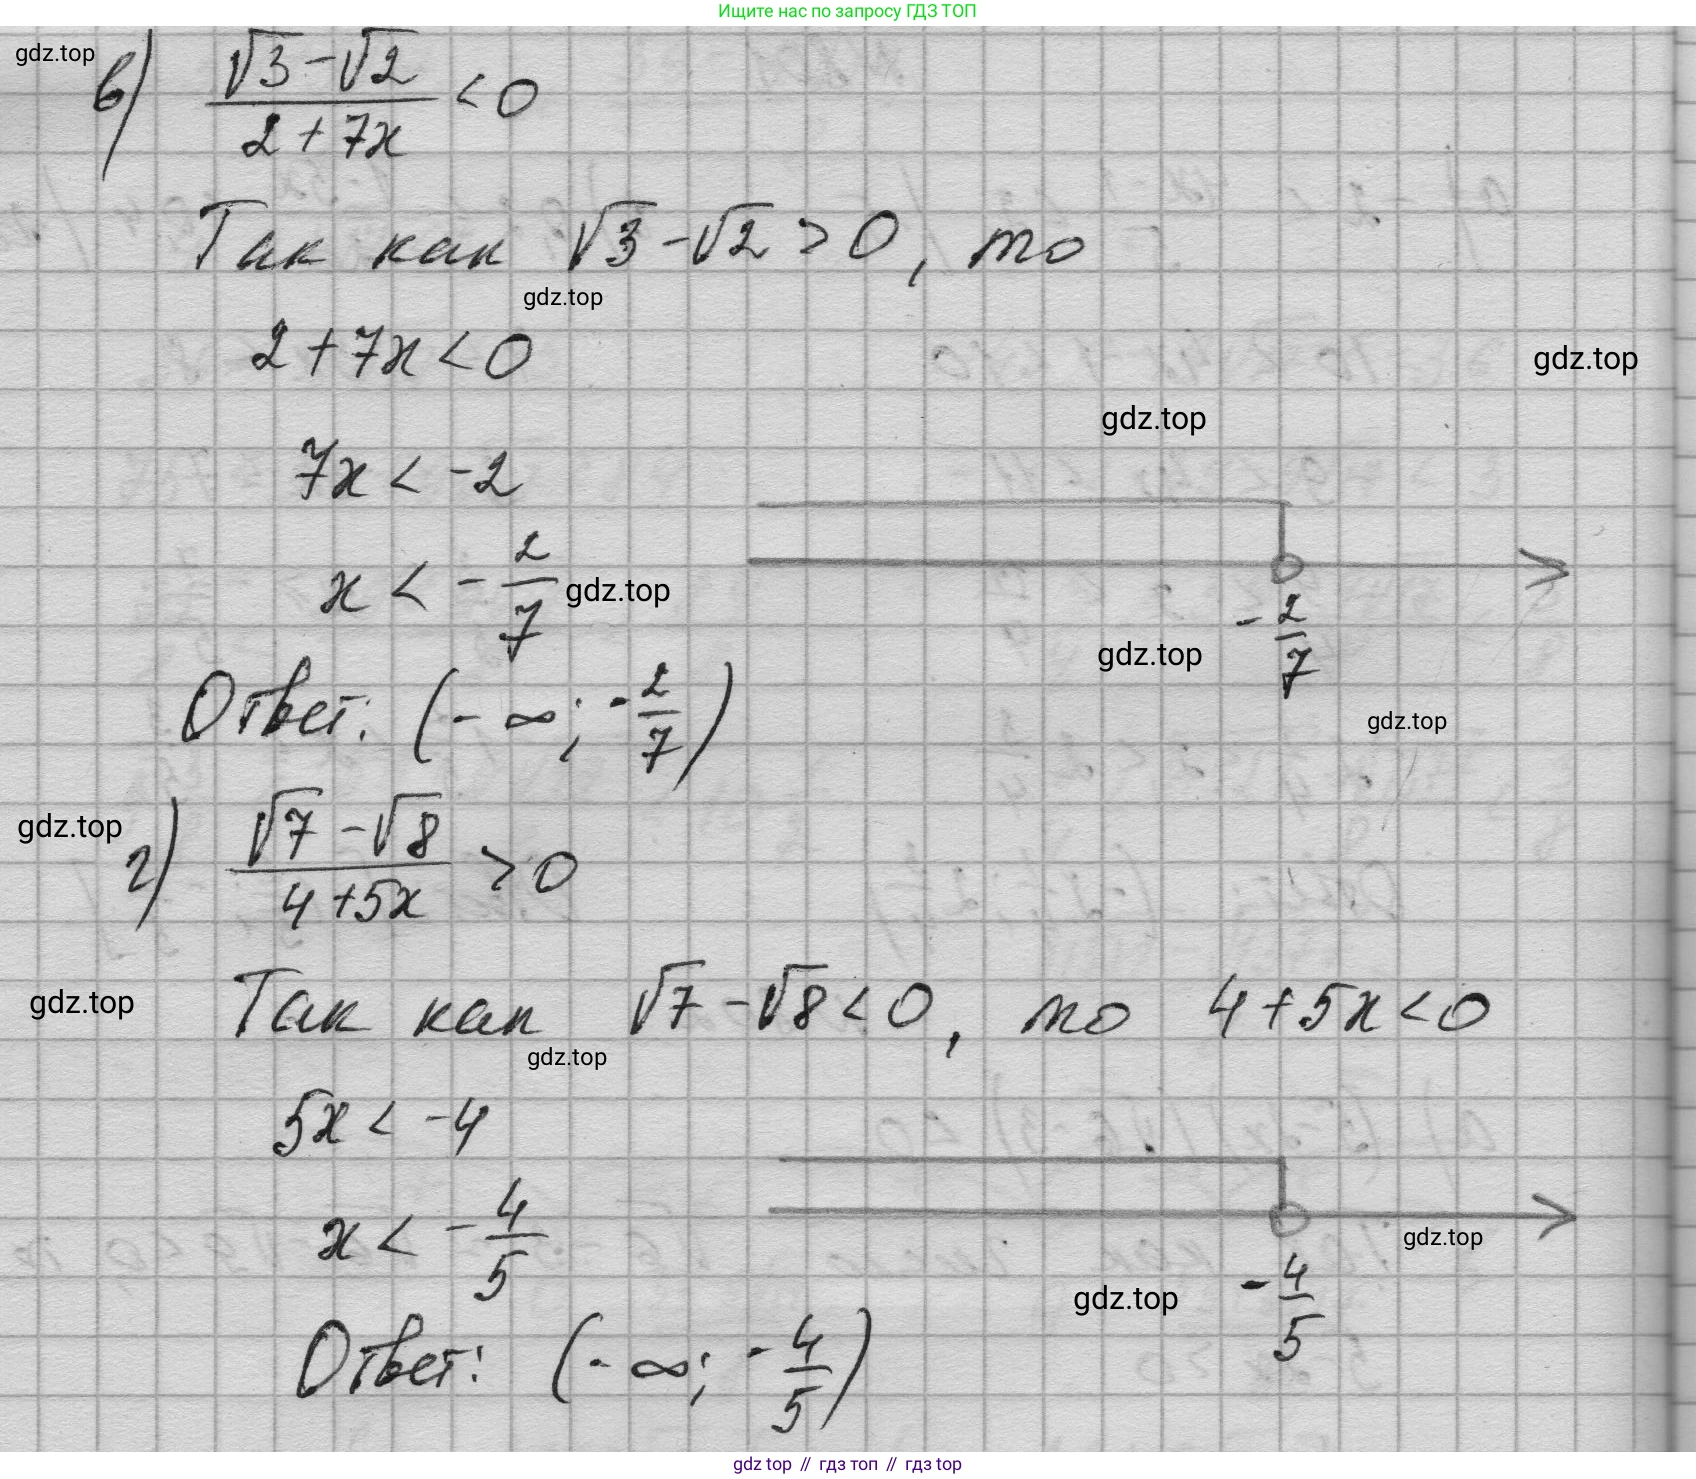 Ищите нас по запросу ГДЗ ТОП
gdz.top
в) (√3 - √2)/(2 + 7x) < 0
Так как √3 - √2 > 0, то
gdz.top
2 + 7x < 0
gdz.top
gdz.top
7x < -2
x < -2/7
gdz.top
-2/7
gdz.top
Ответ: (-∞; -2/7)
gdz.top
gdz.top
г) (√7 - √8)/(4 + 5x) > 0
gdz.top
Так как √7 - √8 < 0, то 4 + 5x < 0
gdz.top
5x < -4
x < -4/5
gdz.top
-4/5
gdz.top
Ответ: (-∞; -4/5)
gdz top // гдз топ // гдз top